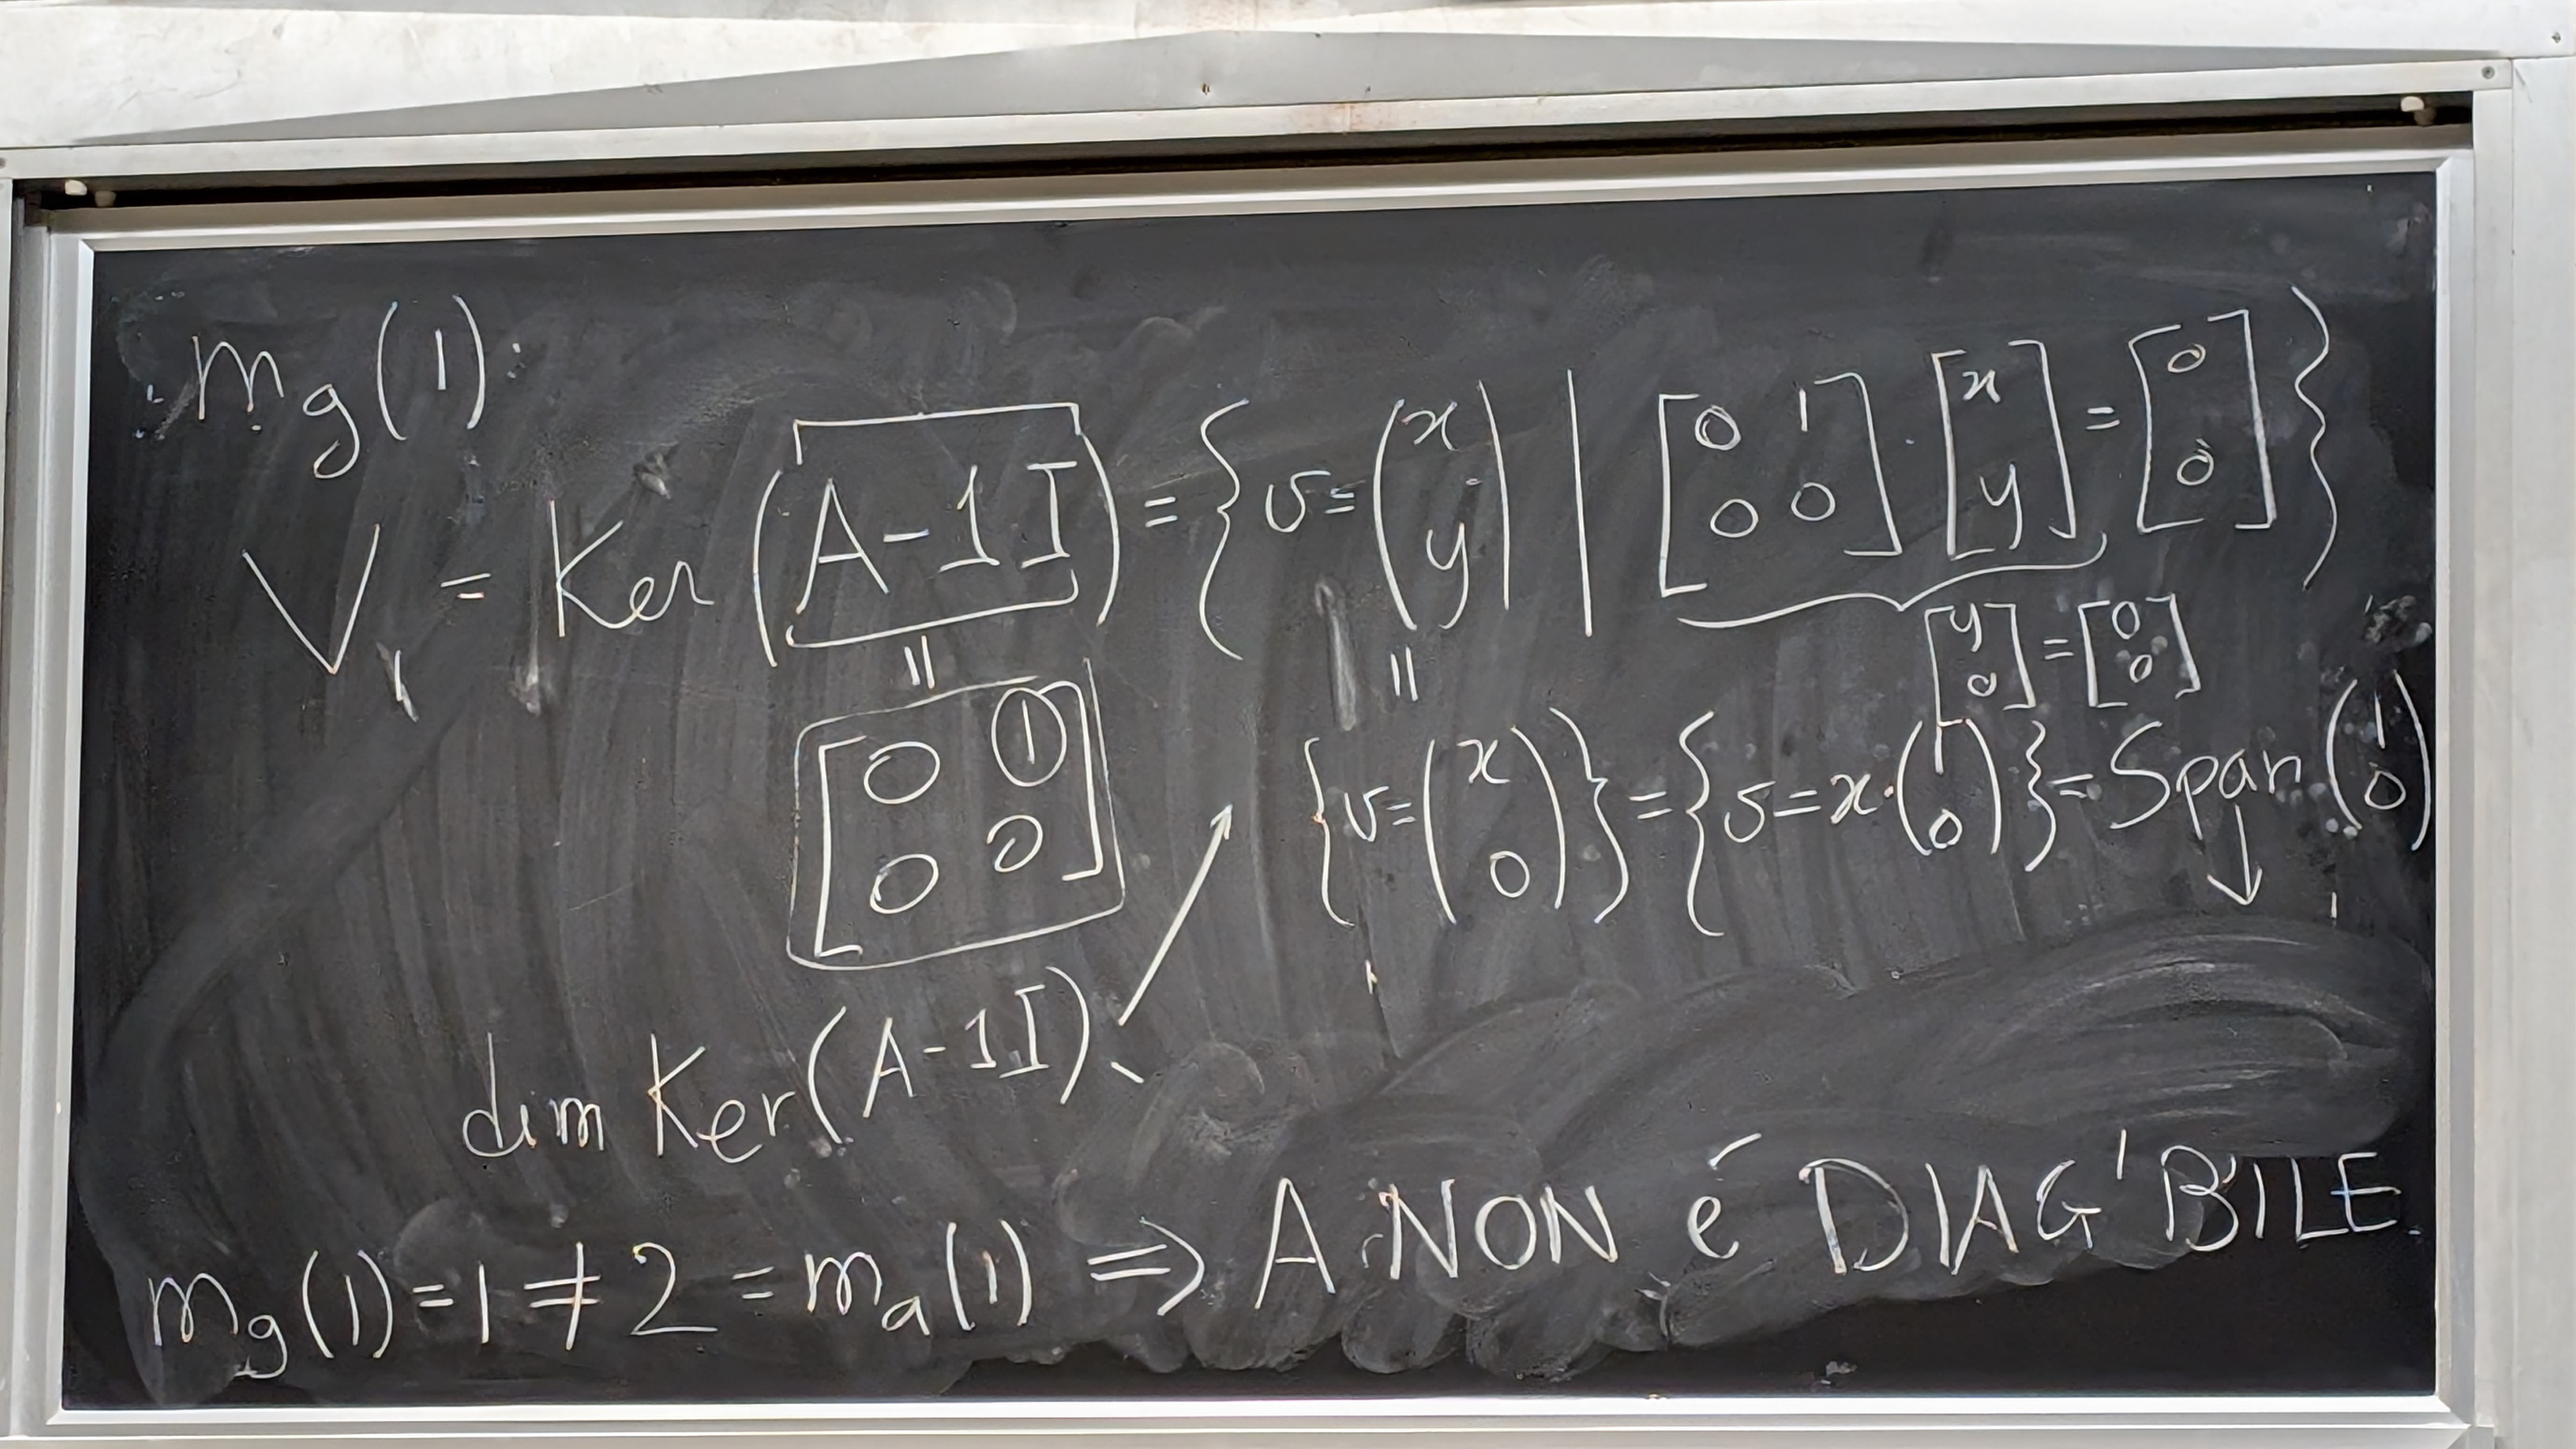 m_g(1):
V_1 = Ker(A-1I) = { v = (x y) | [0 1 0 0] · [x y] = [0 0] }
[y 0] = [0 0]
= [0 1 0 0]
= {v = (x 0)} = {v = x·(1 0)} = Span(1 0)
dim Ker(A-1I)
m_g(1) = 1 ≠ 2 = m_a(1) ⇒ A NON é DIAG'BILE.